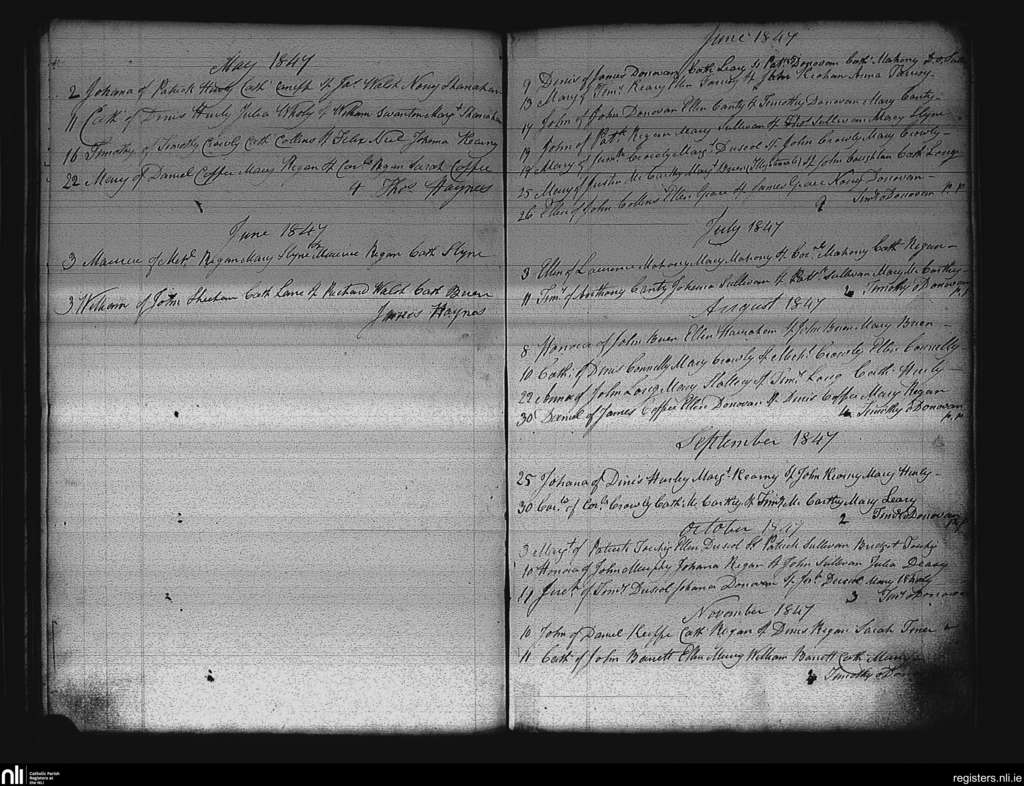 May 1847
2 Johana of Patrick Cath Sp Jas Walsh Nancy Shanahan
11 Cath of Denis Hurly Julia Wholy Sp William Swanton Margt Shanahan
16 Timothy of Timothy Crowly Cath Collins Sp Felix Neil Johana Kearny
22 Mary of Daniel Coffee Mary Regan Sp Cors Regan Sarah Coffee
4 Thos Haynes
June 1847
3 Maurice of Michl Regan Mary Flyne Sp Maurice Regan Cath Flyne
3 William of John Sheehan Cath Lane Sp Richard Walsh Cath Brien
James Haynes
June 1847
9 Denis of James Donovan Cath Leary Sp Patk Donovan Cath Mahony
13 Mary of Keary Ellen Sp John Keohan Anna
14 John of John Donovan Ellen Canty Sp Timothy Donovan Mary Canty
19 John of Patk Regan Mary Sullivan Sp Thos Sullivan Mary Flyne
19 Mary of Crowly Margt Driscol Sp John Crowly Mary Crowly
25 Mary of Justin Mc Carthy Mary Brien (Illegitimate) Sp John Coughlan Cath Long
26 Ellen of John Collins Ellen Grace Sp James Grace Nancy Donovan
Timy o Donovan p.p.
July 1847
3 Ellen of Laurence Mahony Mary Mahony Sp Cors Mahony Cath Regan
11 Timy of Anthony Canty Johana Sullivan Sp Patk Sullivan Mary Mc Carthy
2 Timothy o Donovan p.p.
August 1847
8 Honora of John Brien Ellen Hanrahan Sp John Brien Mary Brien
10 Cath. of Denis Connelly Mary Crowly Sp Michl Crowly Ellen Connelly
22 Anna of John Long Mary Sp Timy Long Cath Hurly
30 Daniel of James Coffee Ellen Donovan Sp Denis Coffee Mary Regan
4 Timothy o Donovan p.p.
September 1847
25 Johana of Denis Hurley Margt Kearny Sp John Kearny Mary Hurly
30 Cors of Cors Crowly Cath Mc Carthy Sp Timy Mc Carthy Mary Leary
2 Timy o Donovan p.p.
October 1847
3 Margt of Patrick Ellen Driscol Sp Patrick Sullivan Bridget
10 Honora of John Murphy Johana Regan Sp John Sullivan Julia Deasy
11 of Timy Driscol Johana Donovan Sp Driscol Mary Wholy
3 Timy o Donovan
November 1847
10 John of Daniel Cath Regan Sp Denis Regan Sarah
11 Cath of John Barrett Ellen Murry William Barrett Cath Murry
2 Timothy o Donovan
nli
Catholic Parish
Registers at
the NLI
registers.nli.ie